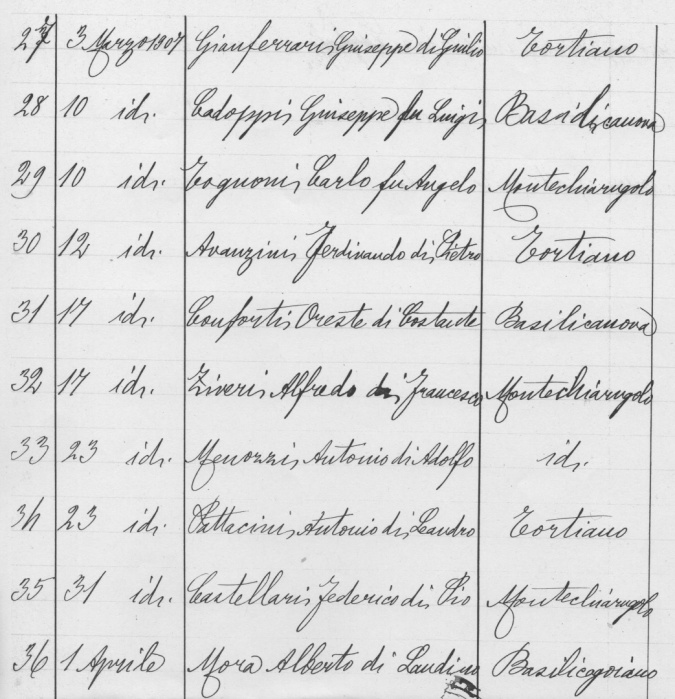 27 3 Marzo 1907 Gianferrari Giuseppe di Giulio Tortiano
28 10 id. Cadoppi Giuseppe fu Luigi Basilicanova
29 10 id. Tognoni Carlo fu Angelo Montechiarugolo
30 12 id. Avanzini Ferdinando di Pietro Tortiano
31 17 id. Conforti Oreste di Costante Basilicanova
32 17 id. Ziveri Alfredo di Francesco Montechiarugolo
33 23 id. Menozzi Antonio di Adolfo id.
34 23 id. Pattacini Antonio di Leandro Tortiano
35 31 id. Castellari Federico di Pio Montechiarugolo
36 1 Aprile Mora Alberto di Landino Basilicagoiano